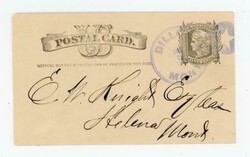 POSTAL CARD.
NOTHING BUT THE ADDRESS CAN BE PLACED ON THIS SIDE
DILL
MON
E. W. Knight Esq
Helena
Mont.